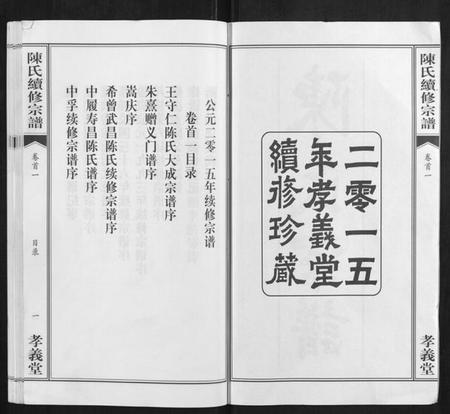 陳氏續修宗譜
卷首一
孝義堂
二零一五
年孝義堂
續修珍藏
公元二零一五年续修宗谱
卷首一目录
王守仁陈氏大成宗谱序
朱熹赠义门谱序
嵩庆序
希曾武昌陈氏续修宗谱序
中履寿昌陈氏谱序
中孚续修宗谱序
陳氏續修宗譜
卷首一
目录
一
孝義堂